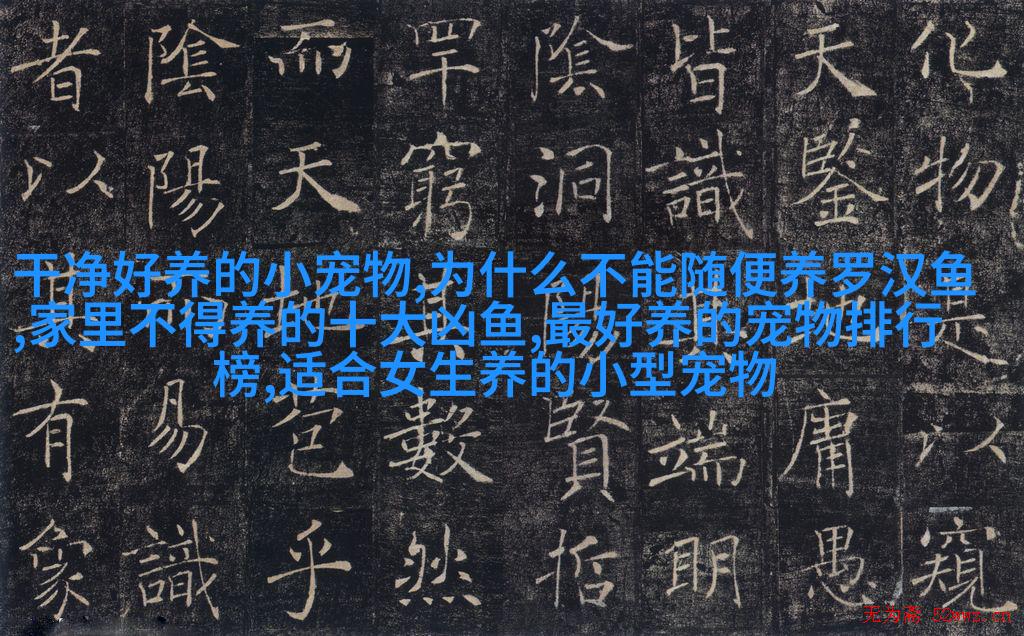 化物是以窺
天鑒庸愚
皆識端明
陰洞賢哲
罕窮數然
而天苞乎
陰陽易識
者以有象
干净好养的小宠物,为什么不能随便养罗汉鱼
,家里不得养的十大凶鱼,最好养的宠物排行
榜,适合女生养的小型宠物
无为斋 52wwz.cn